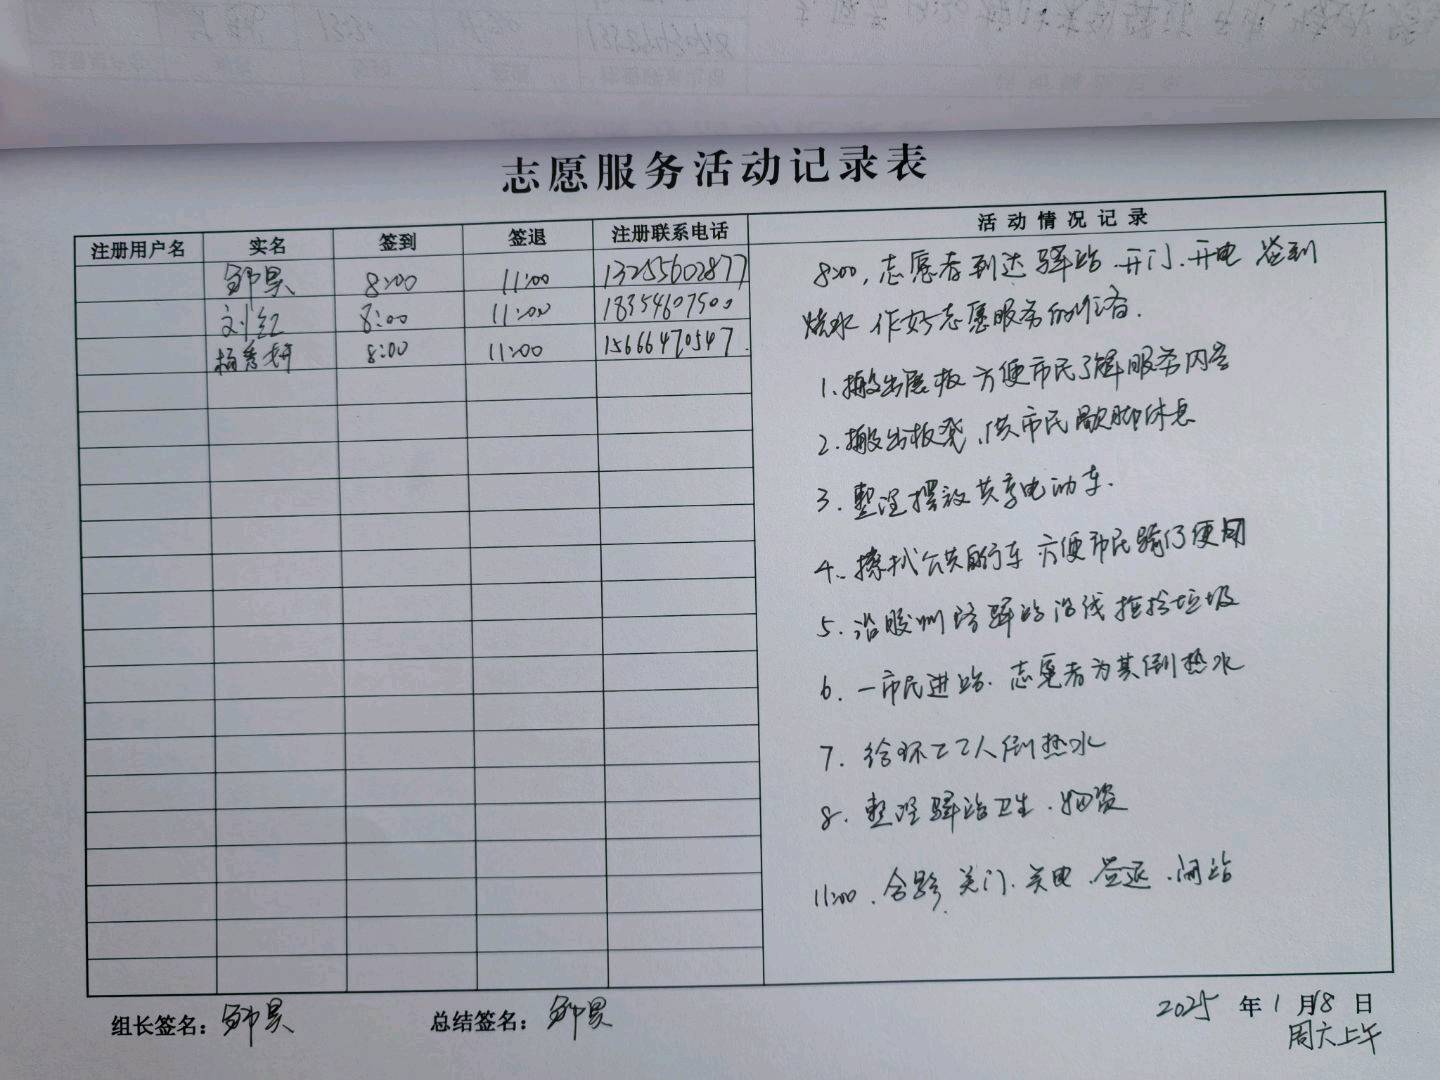 志愿服务活动记录表
注册用户名 实名 签到 签退 注册联系电话 活动情况记录
邹昊 8:00 11:00 13255602877
刘红 8:00 11:00 18354607500
杨秀妍 8:00 11:00 15666470547
8:00，志愿者到达驿站、开门、开电 签到
烧水 作好志愿服务的准备.
1.搬出展板 方便市民了解服务内容
2.搬出板凳、供市民歇脚休息
3.整理摆放共享电动车.
4、擦拭公共自行车 方便市民骑行使用
5.沿胶州路驿站沿线捡拾垃圾
6.一市民进站.志愿者为其倒热水
7.给环卫工人倒热水
8.整理驿站卫生、物资
11:00、合影、关门、关电、签退、闭站
组长签名：邹昊 总结签名：邹昊 2025年1月18日
周六上午